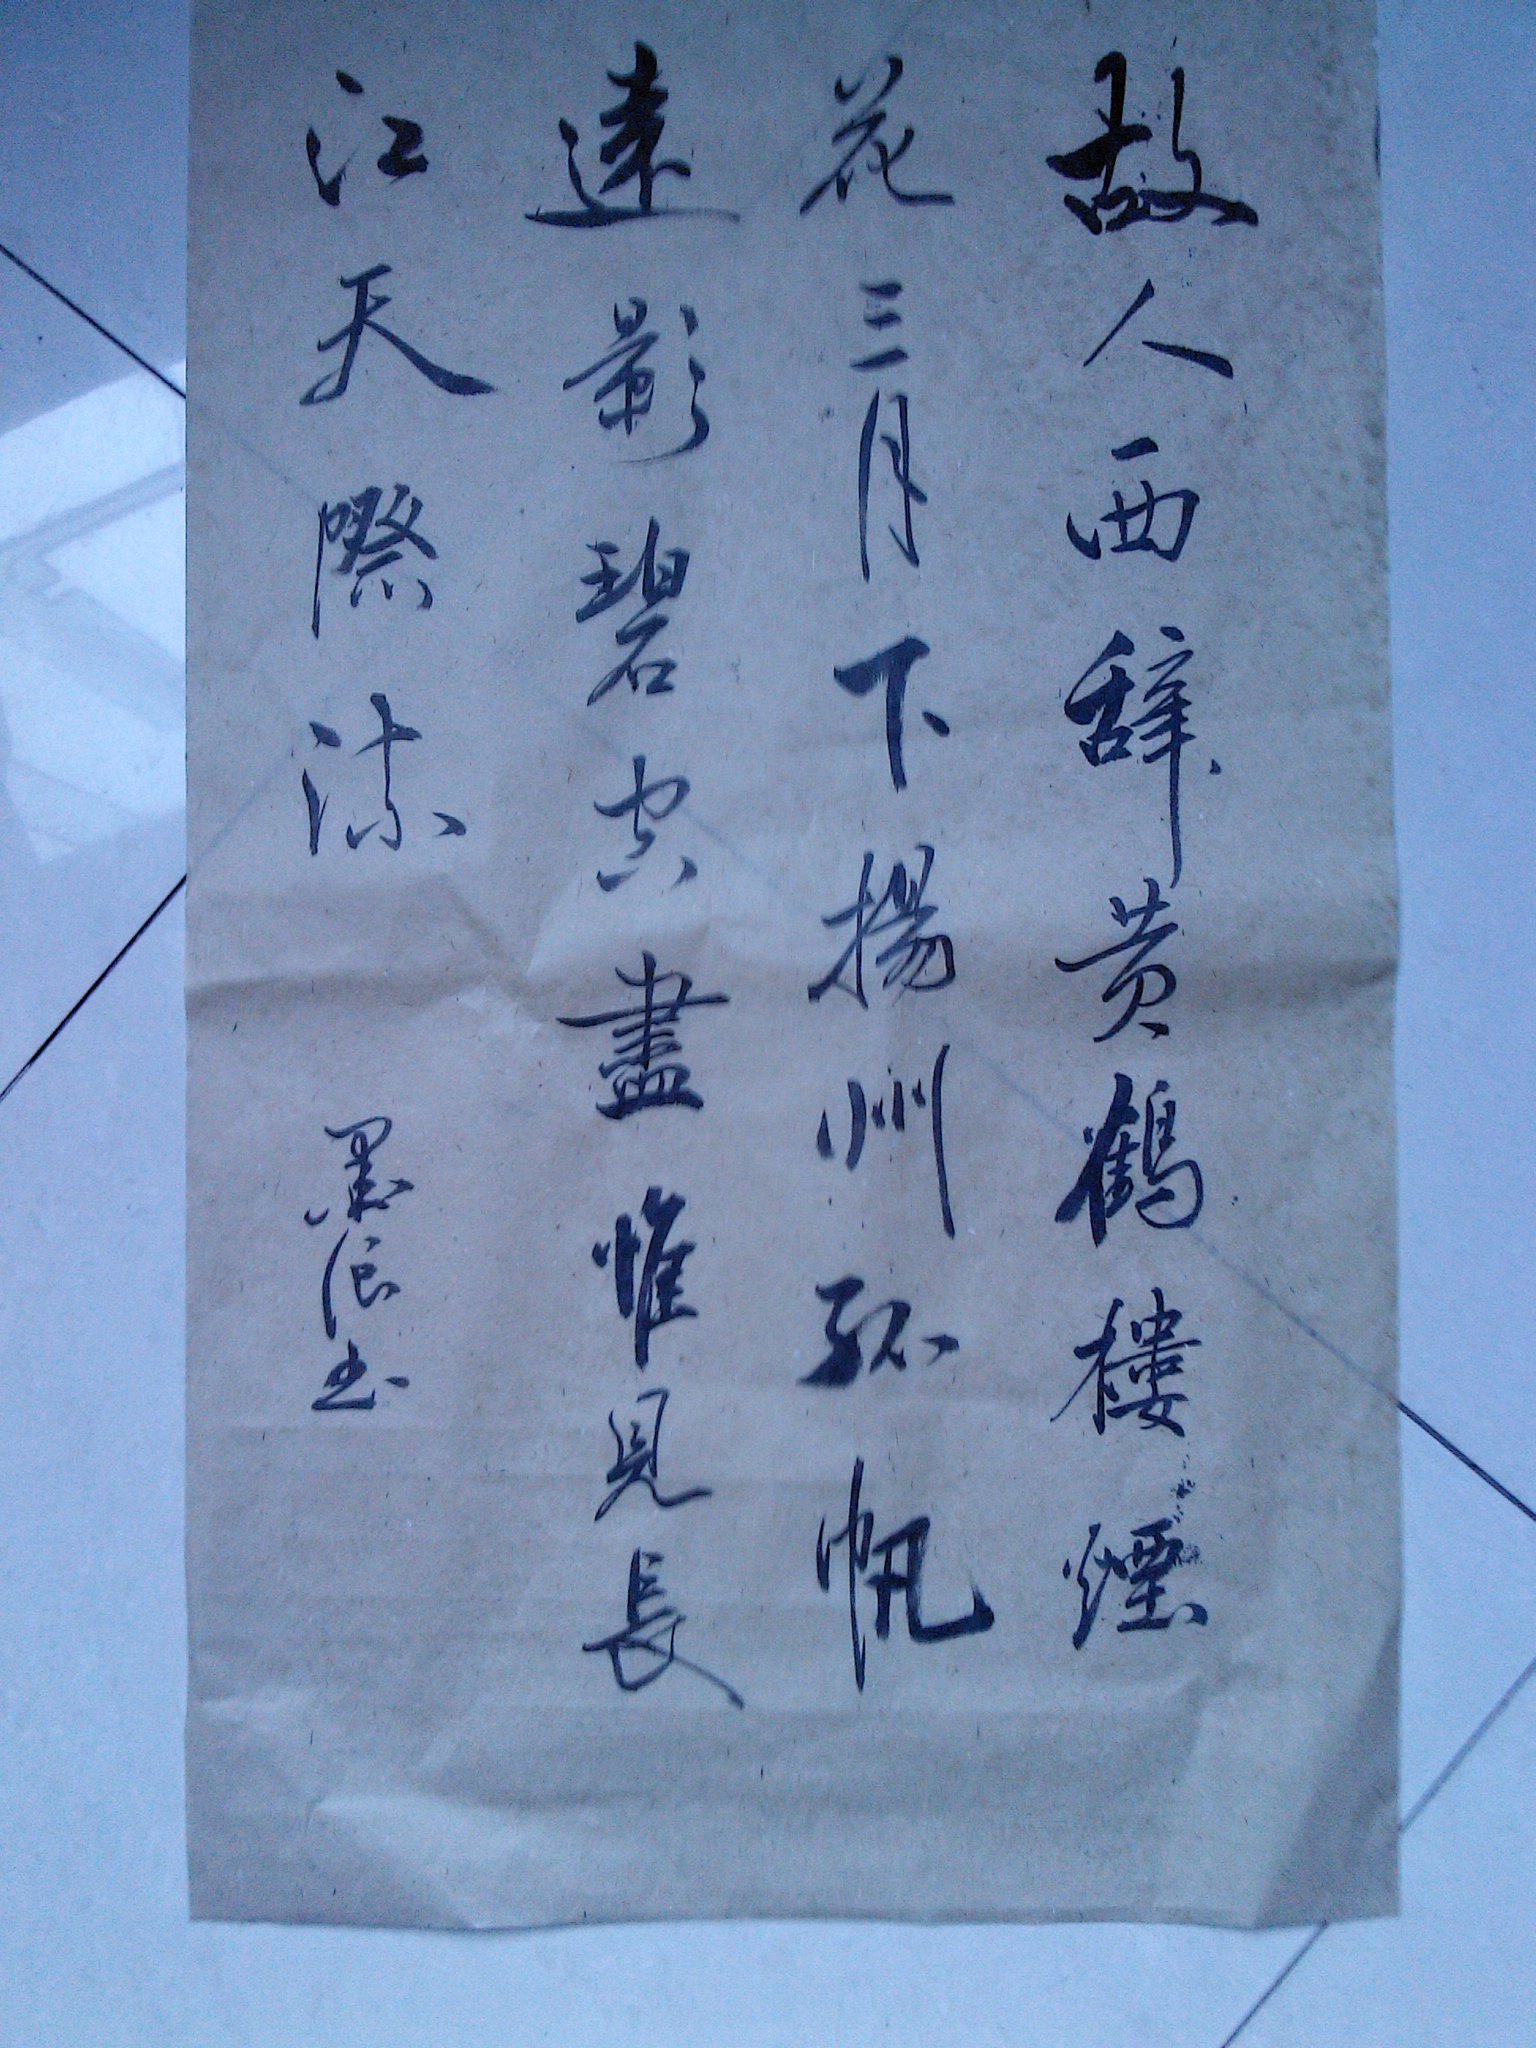 故人西辞黄鹤樓煙
花三月下揚州孤帆
遠影碧空盡惟見長
江天際流
墨浪书